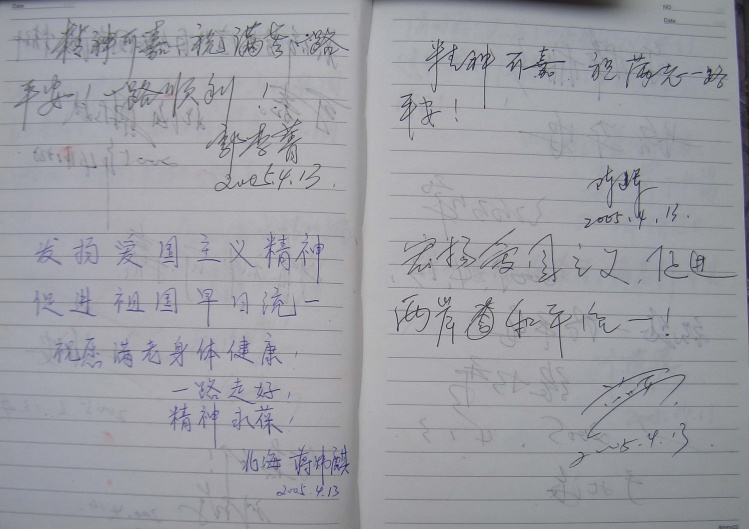 精神可嘉 祝满老一路
平安！一路顺利！
2005.4.13.
发扬爱国主义精神
促进祖国早日统一
祝愿满老身体健康，
一路走好，
精神永葆，
北海 蒋炜麒
2005.4.13
精神可嘉 祝满老一路
平安！
2005.4.13.
宏扬爱国主义，促进
两岸和平统一！
2005.4.13